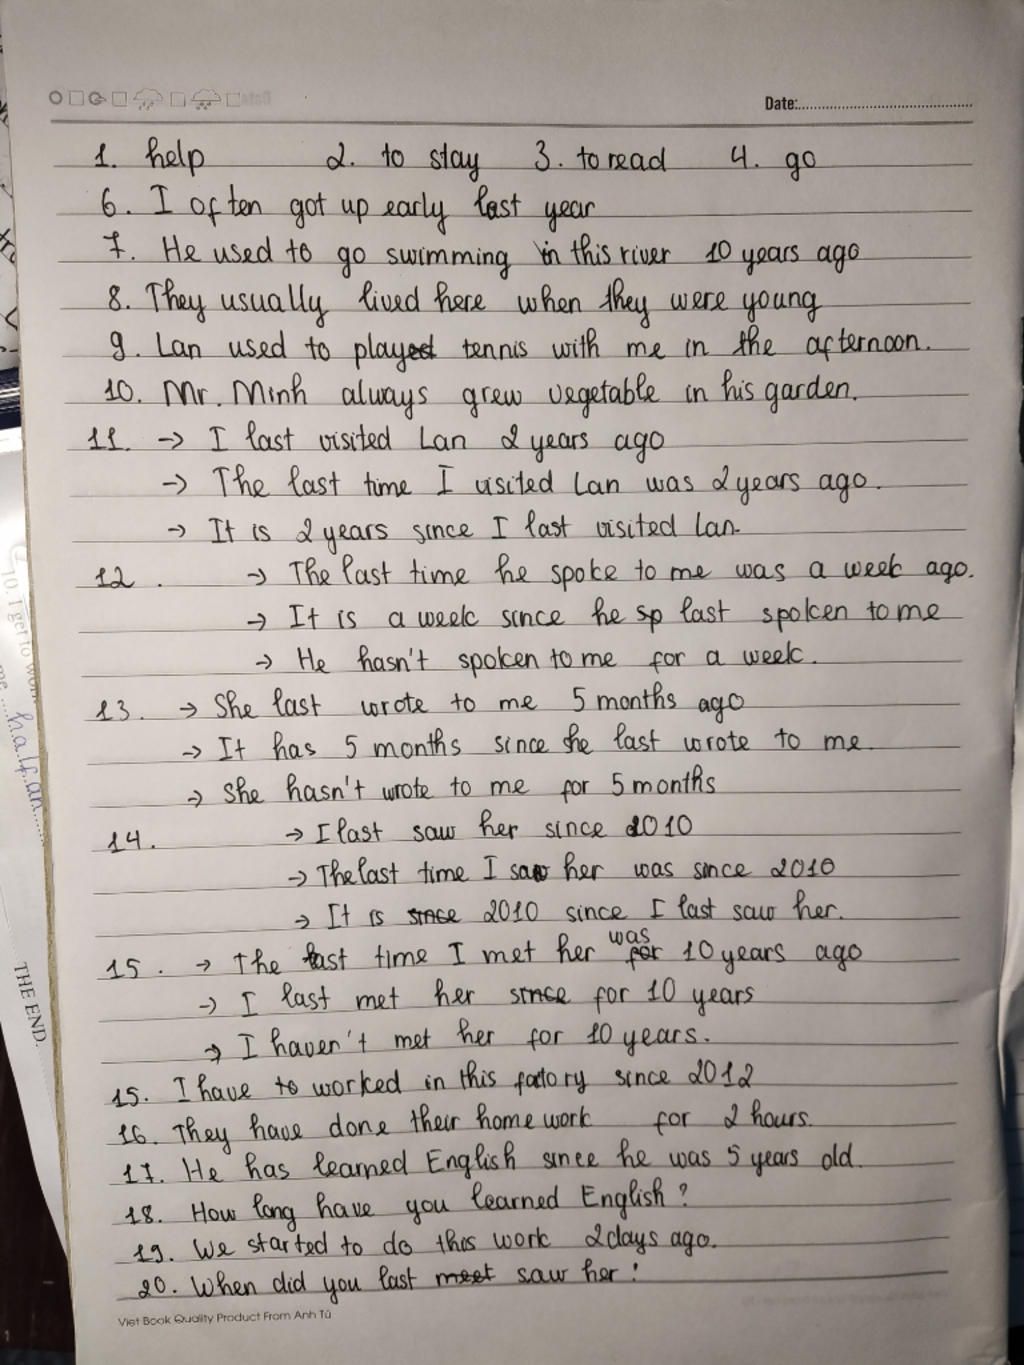 Date:
1. help 2. to stay 3. to read 4. go
6. I often got up early last year
7. He used to go swimming in this river 10 years ago
8. They usually lived here when they were young
9. Lan used to played tennis with me in the afternoon.
10. Mr. Minh always grew vegetable in his garden.
11. → I last visited Lan 2 years ago
→ The last time I visited Lan was 2 years ago.
→ It is 2 years since I last visited Lan.
12. → The last time he spoke to me was a week ago.
→ It is a week since he sp last spoken to me
→ He hasn't spoken to me for a week.
13. → She last wrote to me 5 months ago
→ It has 5 months since she last wrote to me.
→ She hasn't wrote to me for 5 months
14. → I last saw her since 2010
→ The last time I saw her was since 2010
→ It is since 2010 since I last saw her.
15. → The last time I met her for was 10 years ago
→ I last met her since for 10 years
→ I haven't met her for 10 years.
15. I have to worked in this factory since 2012
16. They have done their home work for 2 hours.
17. He has learned English since he was 5 years old.
18. How long have you learned English?
19. We started to do this work 2 days ago.
20. When did you last meet saw her?
Viet Book Quality Product From Anh Tú
10. I get to
half an
THE END.